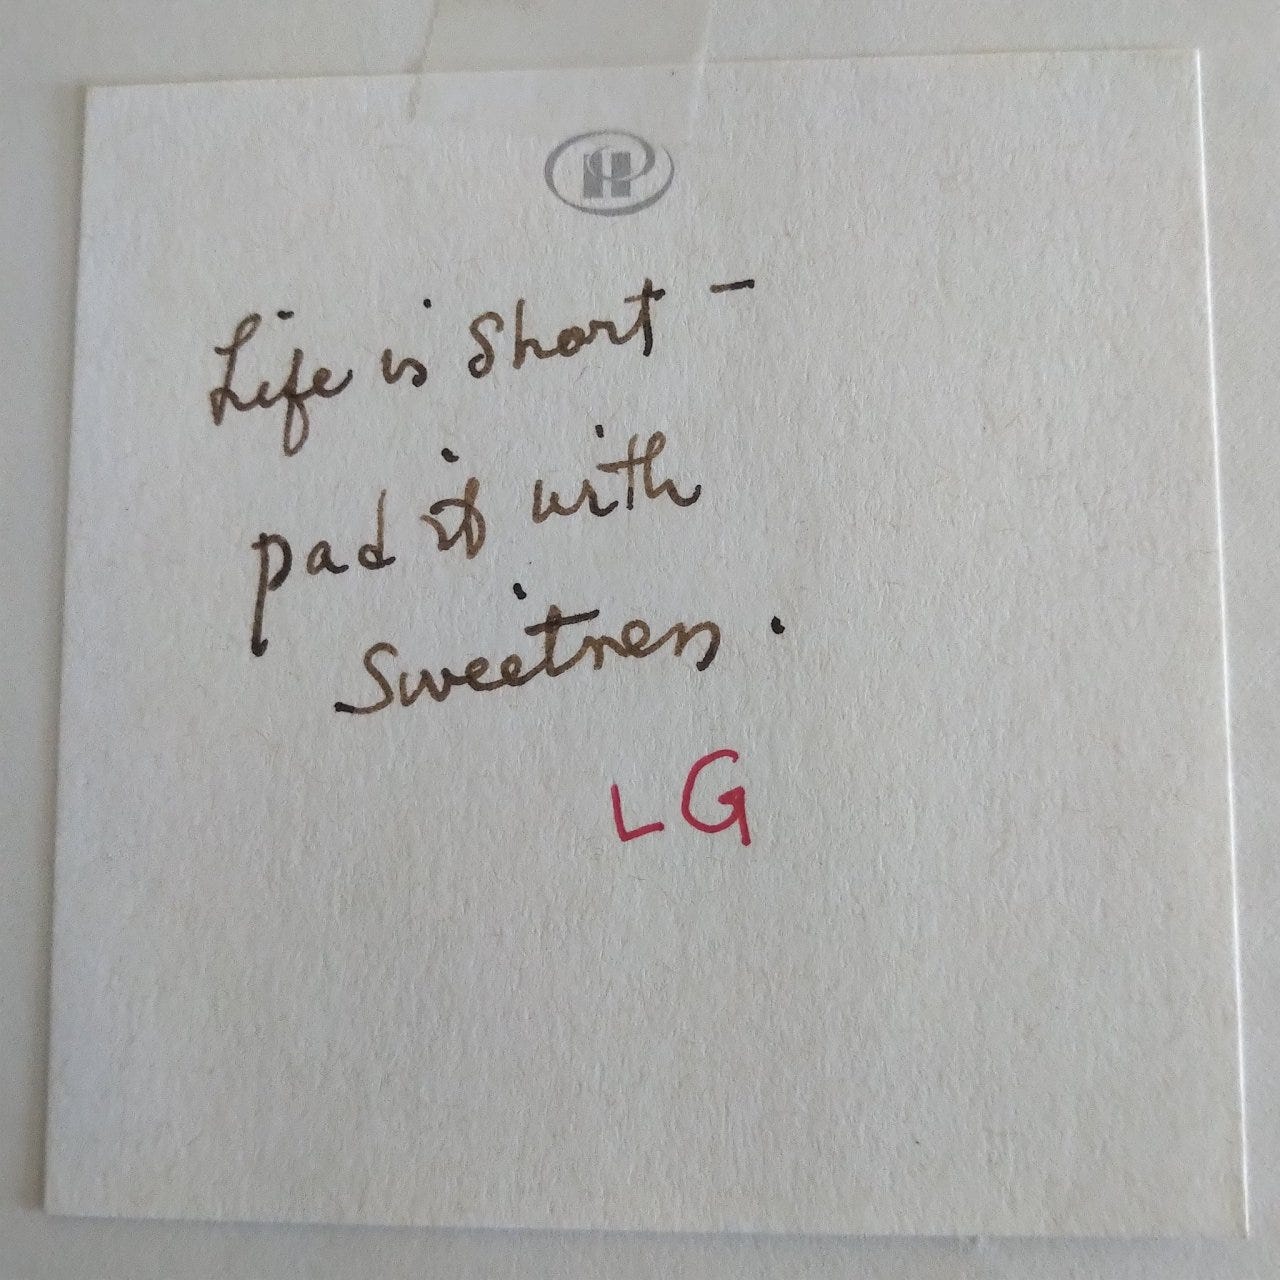 H
Life is Short -
pad it with
Sweetness.
LG